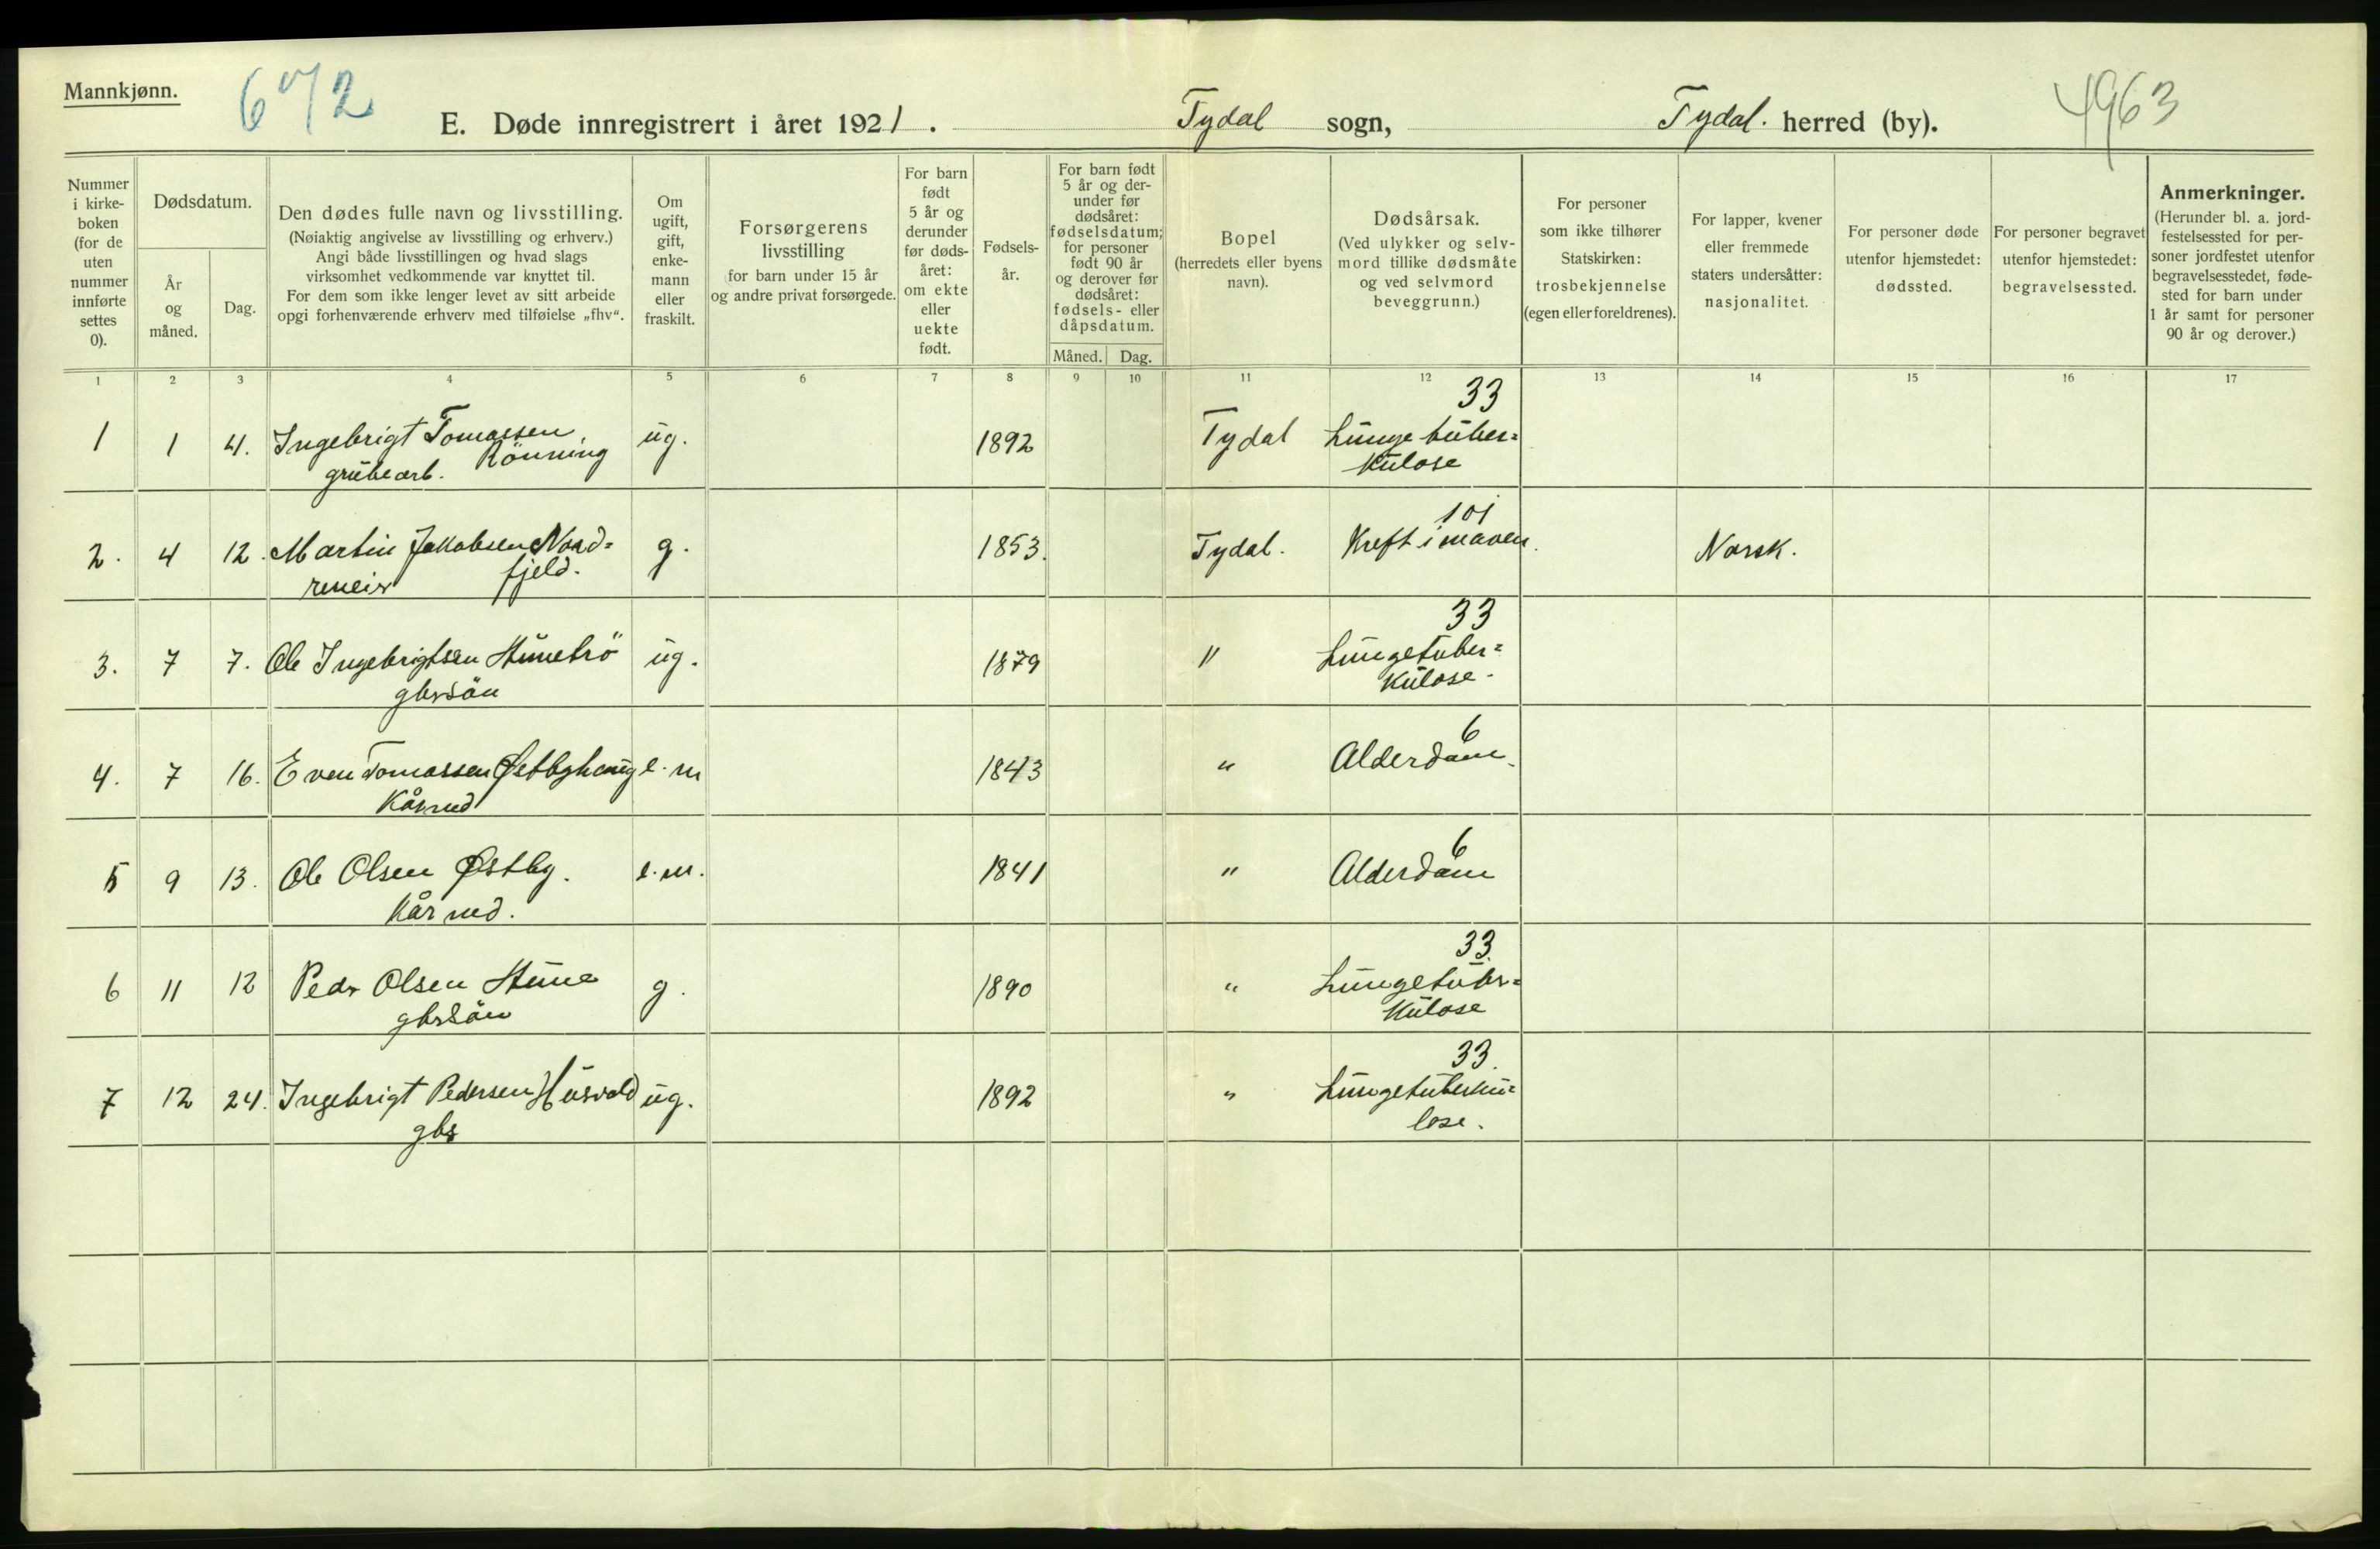 Mannkjønn.
672
E. Døde innregistrert i året 1921. Tydal sogn, Tydal. herred (by).
4963
Nummer i kirke-boken (for de uten nummer innførte settes 0).
Dødsdatum.
År og måned.
Dag.
Den dødes fulle navn og livsstilling.
(Nøiaktig angivelse av livsstilling og erhverv.)
Angi både livsstillingen og hvad slags
virksomhet vedkommende var knyttet til.
For dem som ikke lenger levet av sitt arbeide
opgi forhenværende erhverv med tilføielse „fhv“.
Om ugift, gift, enke-mann eller fraskilt.
Forsørgerens livsstilling
for barn under 15 år
og andre privat forsørgede.
For barn født 5 år og derunder før døds-året: om ekte eller uekte født.
Fødsels-år.
For barn født 5 år og der-under før dødsåret: fødselsdatum; for personer født 90 år og derover før dødsåret: fødsels- eller dåpsdatum.
Måned. Dag.
Bopel
(herredets eller byens navn).
Dødsårsak.
(Ved ulykker og selv-mord tillike dødsmåte og ved selvmord beveggrunn.)
For personer som ikke tilhører Statskirken: trosbekjennelse (egen eller foreldrenes).
For lapper, kvener eller fremmede staters undersåtter: nasjonalitet.
For personer døde utenfor hjemstedet: dødssted.
For personer begravet utenfor hjemstedet: begravelsessted.
Anmerkninger.
(Herunder bl. a. jord-festelsessted for per-soner jordfestet utenfor begravelsesstedet, føde-sted for barn under 1 år samt for personer 90 år og derover.)
1 2 3 4 5 6 7 8 9 10 11 12 13 14 15 16 17
33
1 1 4. Ingebrigt Tomassen ug. 1892 Tydal Lungetuber=
Rönning
grubearb. kulose
101
2. 4 12. Martin Jakobsen Nord= g. 1853. Tydal. Kreft i maven. Norsk.
fjeld.
reneier
33
3. 7 7. Ole Ingebrigtsen Stuetrö ug. 1879 " Lungetuber=
gbrsön kulose.
6
4. 7 16. Even Tomassen Østbyhaug e.m 1843 " Alderdom.
Kårmd
6
5 9 13. Ole Olsen Østby. e.m. 1841 " Alderdom
Kårmd.
33.
6 11 12 Peder Olsen Stuue g. 1890 " Lungetuber=
gbrsön kulose
33.
7 12 24. Ingebrigt Pedersen Husvold ug. 1892 " Lungetuberku=
gbs lose.